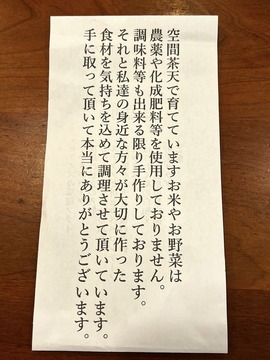 空間茶天で育てていますお米やお野菜は
農薬や化成肥料等を使用しておりません。
調味料等も出来る限り手作りしております。
それと私達の身近な方々が大切に作った
食材を気持ちを込めて調理させて頂いています。
手に取って頂いて本当にありがとうございます。